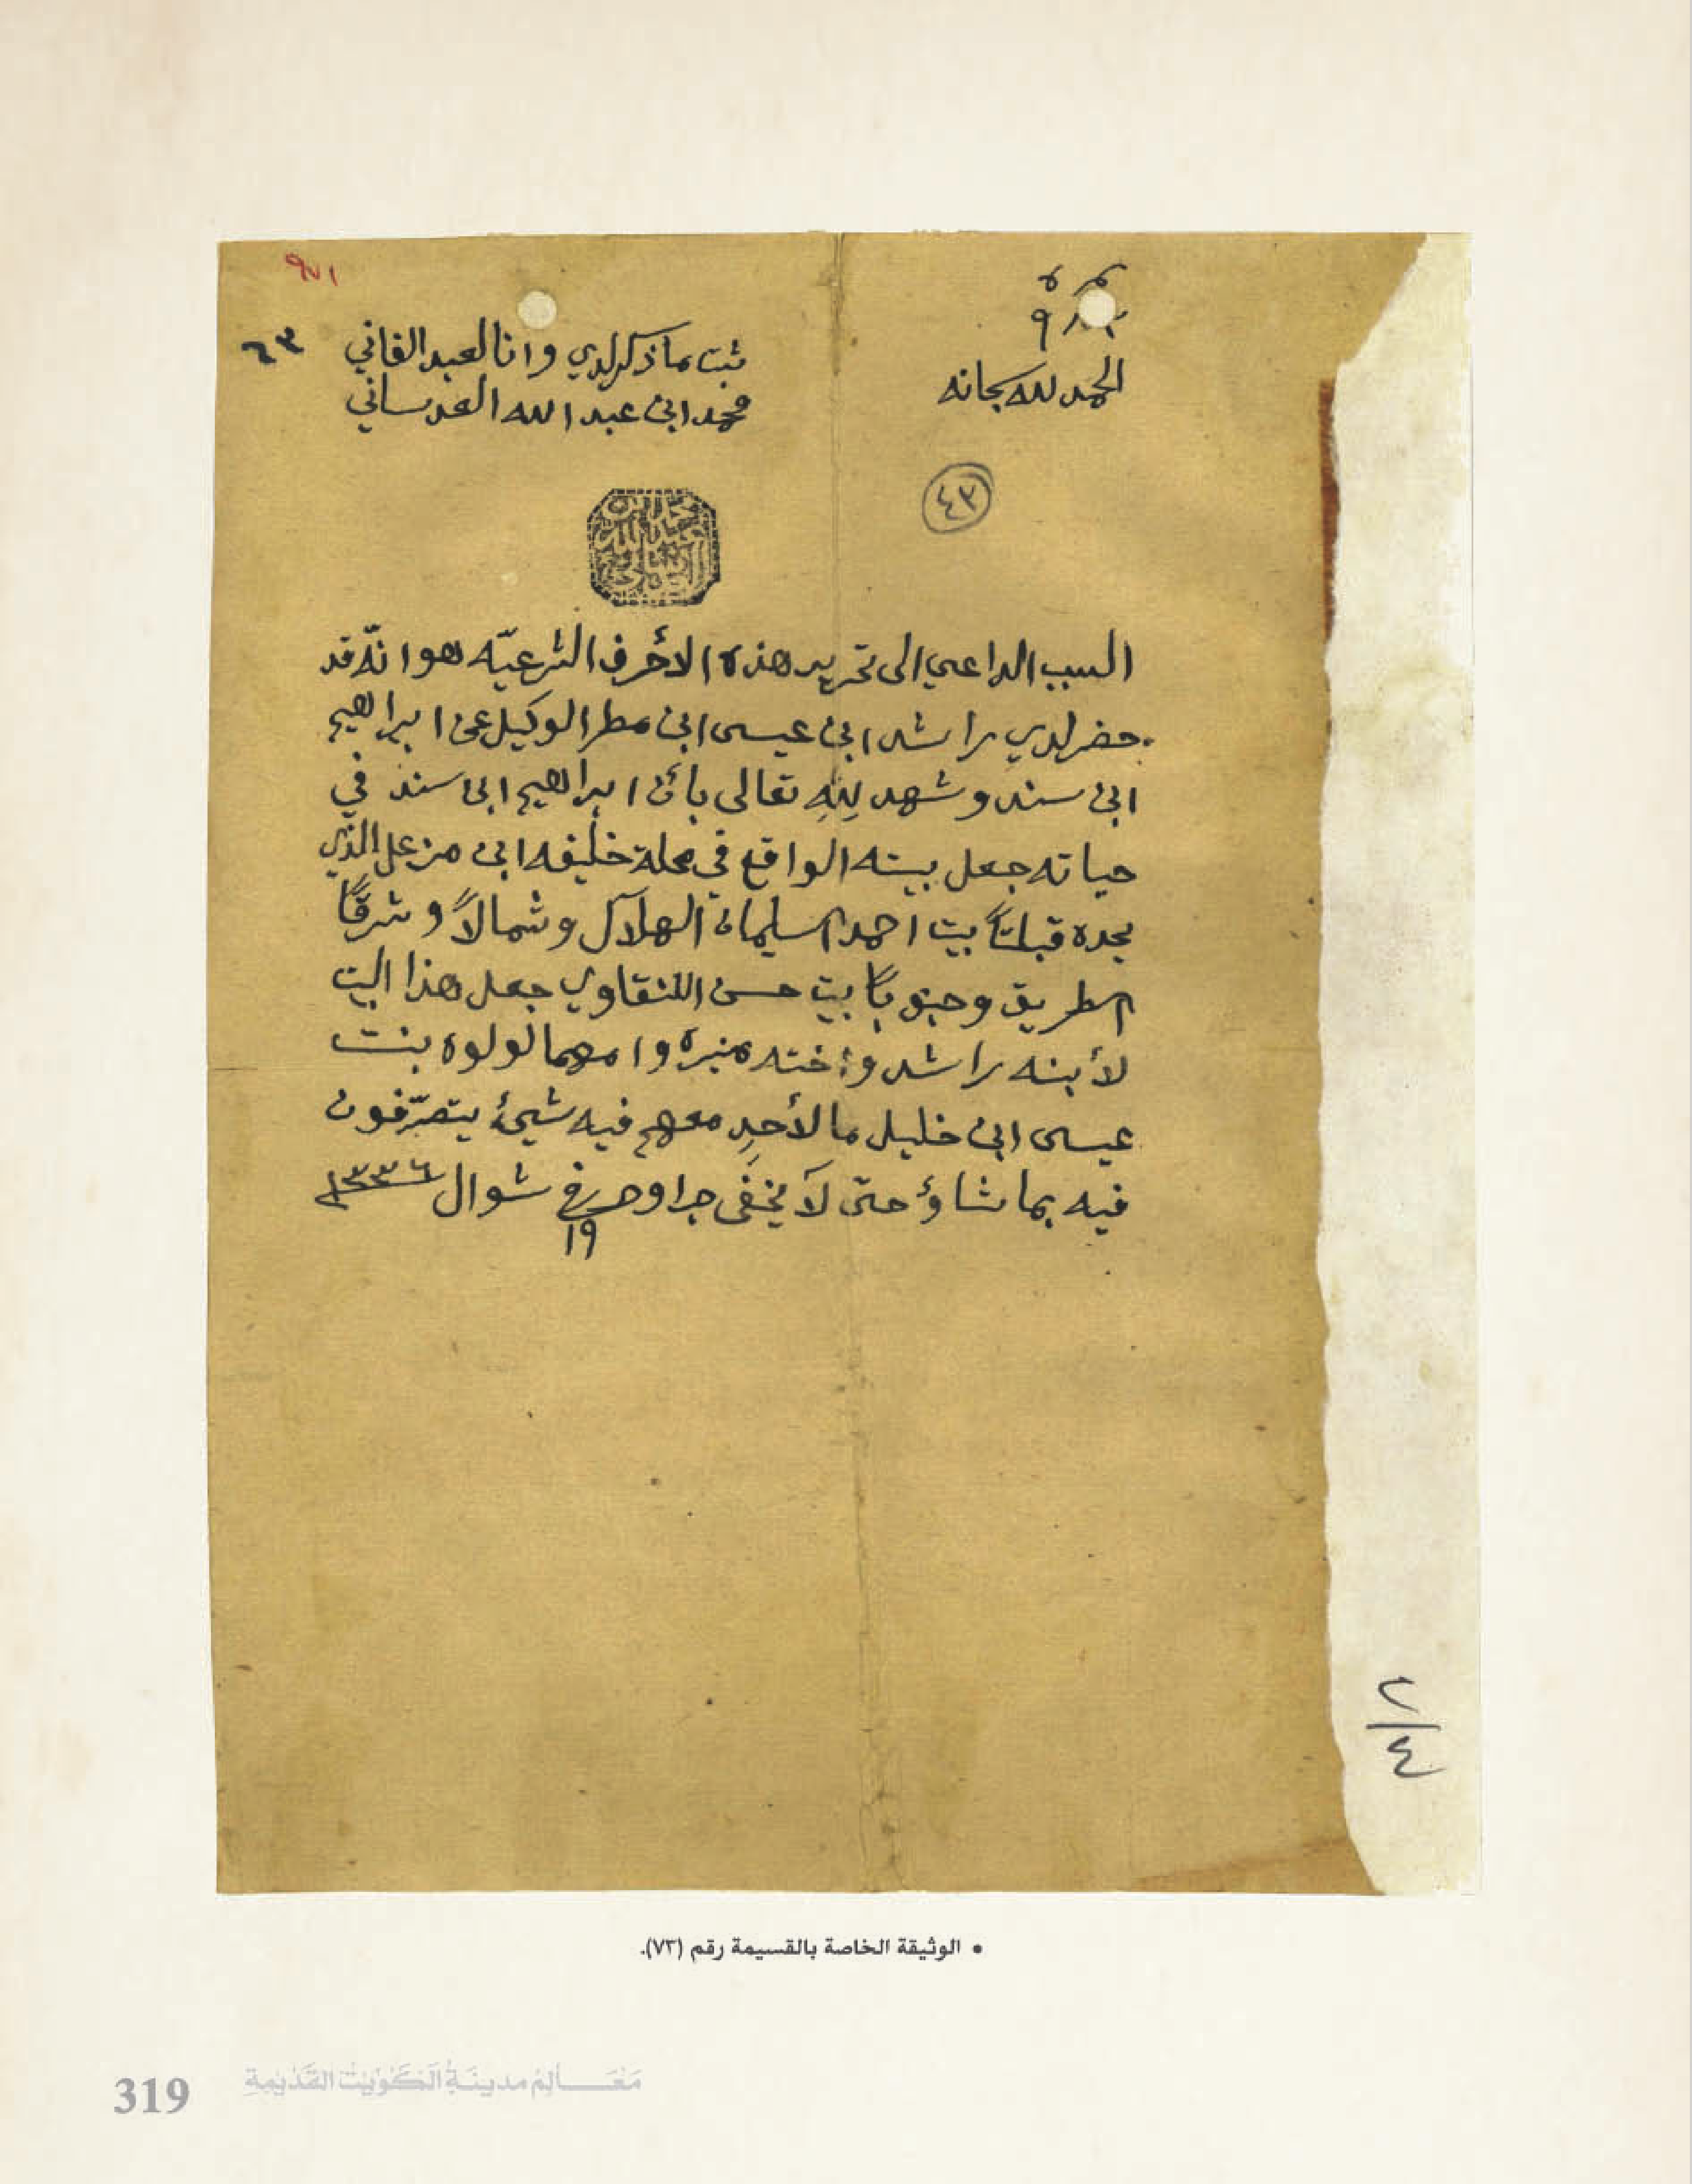 ٩٧١
الحمد لله سبحانه
ثبت ما ذكر لدي وانا العبد الفاني
محمد ابن عبد الله العدساني
٤٣
السبب الداعي الى تحرير هذه الأحرف الشرعيّه هو انّه قد
حضر لدي راشد ابن عيسى ابن مطر الوكيل عن ابراهيم
ابن سند وشهد لِلهِ تعالى بأن ابراهيم ابن سند في
حياته جعل بيته الواقع في محلة خليفه ابن مزعل الذي
يحده قبلتاً بيت احمد السليمان الهلال وشمالاً وشرقاً
الطريق وجنوباً بيت حسن التنقاوي جعل هذا البيت
لأبنه راشد وأخته منيره وامهما لولوه بنت
عيسى ابن خليل ما لأحدٍ معهم فيه شيئ يتصرّفون
فيه بما شاؤ حتى لا يخفى جرا وحرر في ١٩ شوال ١٣٣٦
٢/٤
• الوثيقة الخاصة بالقسيمة رقم (٧٣).
319 مَعَالِم مدينَة الكُوَيْت القَدْيمَة